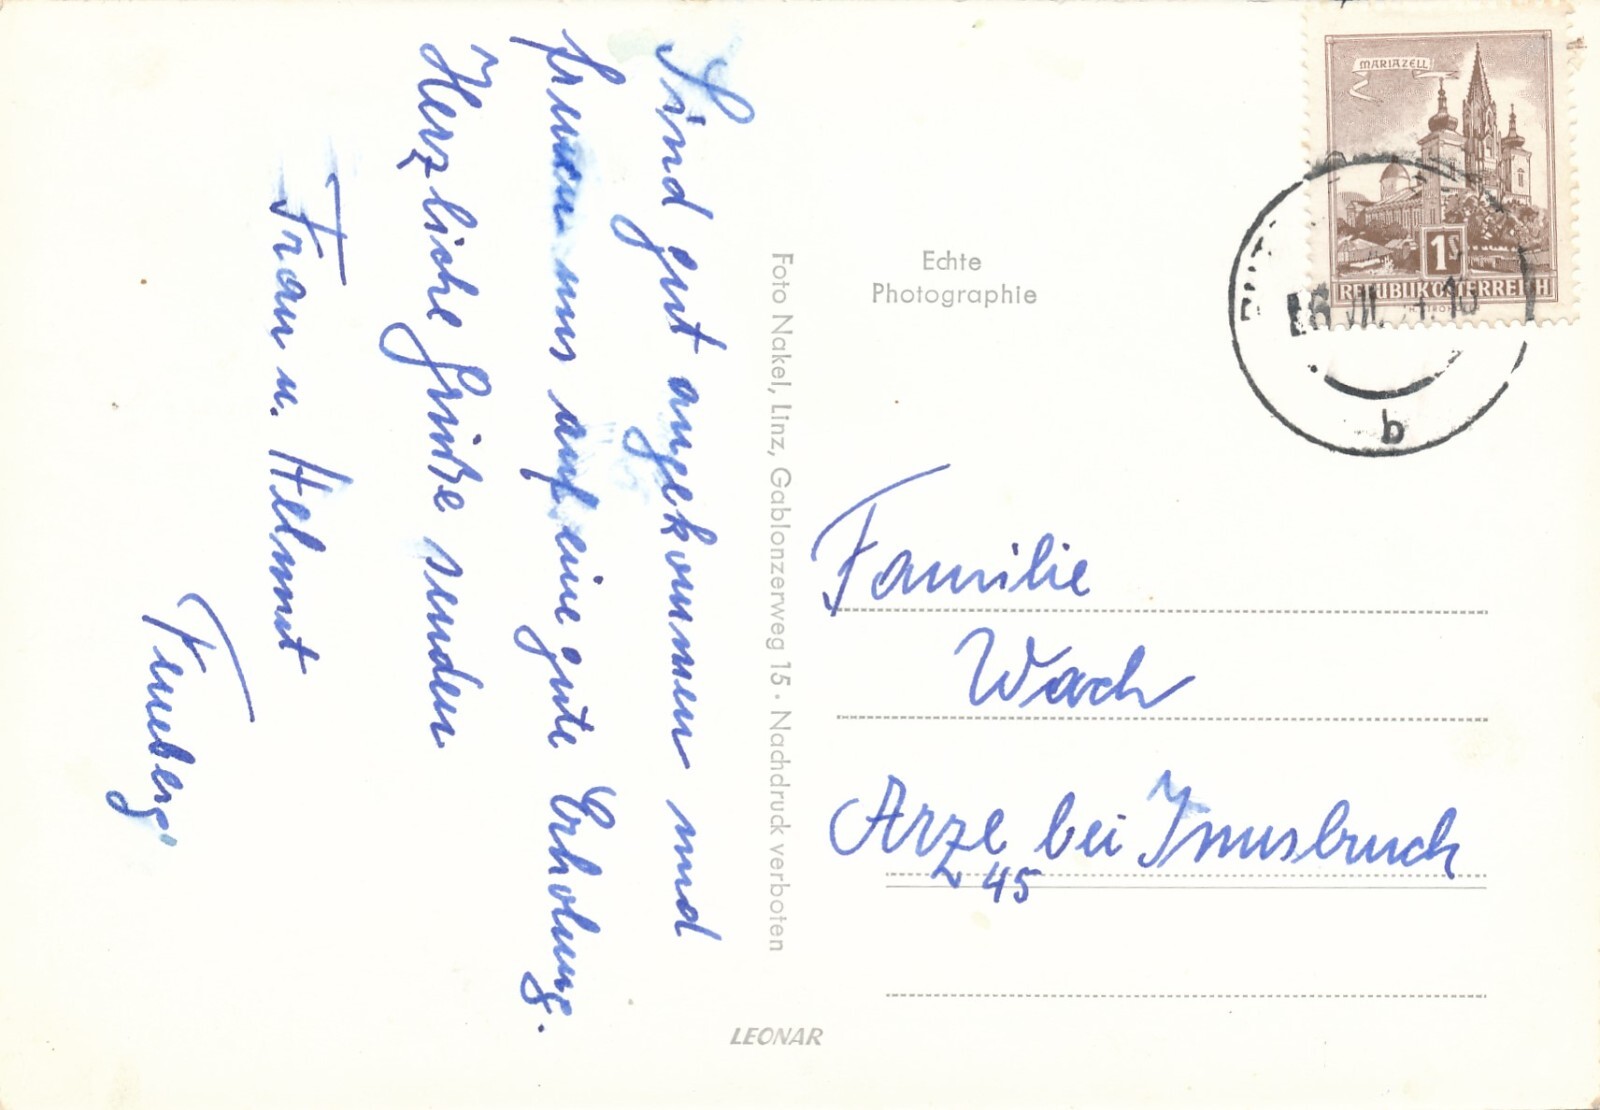 Sind gut angekommen und
freuen uns auf eine gute Erholung.
Herzliche Grüße senden
Frau u. Helmut
Echte
Photographie
Foto Nakel, Linz, Gablonzerweg 15 · Nachdruck verboten
LEONAR
MARIAZELL
1S
REPUBLIK ÖSTERREICH
b
Familie
Wach
Arzl bei Innsbruck
45